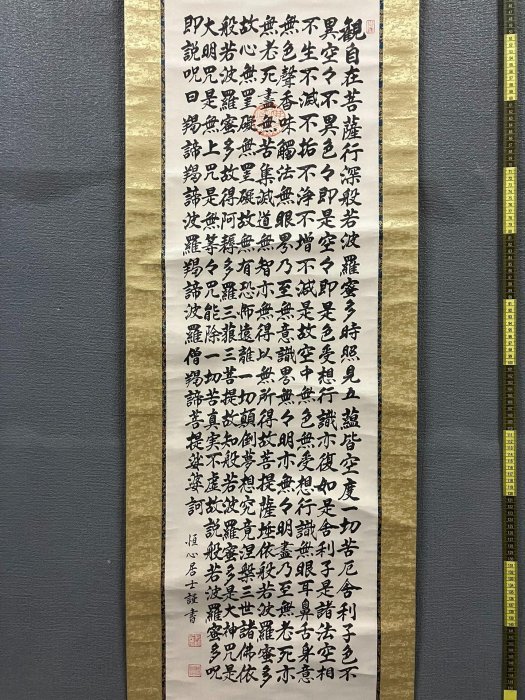 觀自在菩薩行深般若波羅蜜多時照見五蘊皆空度一切苦厄舍利子色不
異空々不異色々即是空々即是色受想行識亦復如是舍利子是諸法空相
不生不滅不垢不淨不增不減是故空中無色無受想行識無眼耳鼻舌身意
無色聲香味觸法無眼界乃至無意識界無々明亦無々明盡乃至無老死亦
無老死盡無苦集滅道無智亦無得以無所得故菩提薩埵依般若波羅蜜多
故心無罣礙無罣礙故無有恐怖遠離一切顛倒夢想究竟涅槃三世諸佛依
般若波羅蜜多故得阿耨多羅三藐三菩提故知般若波羅蜜多是大神呪是
大明呪是無上呪是無等々呪能除一切苦真実不虛故說般若波羅蜜多呪
即說呪曰羯諦羯諦波羅羯諦波羅僧羯諦菩提娑婆訶
恒心居士謹書